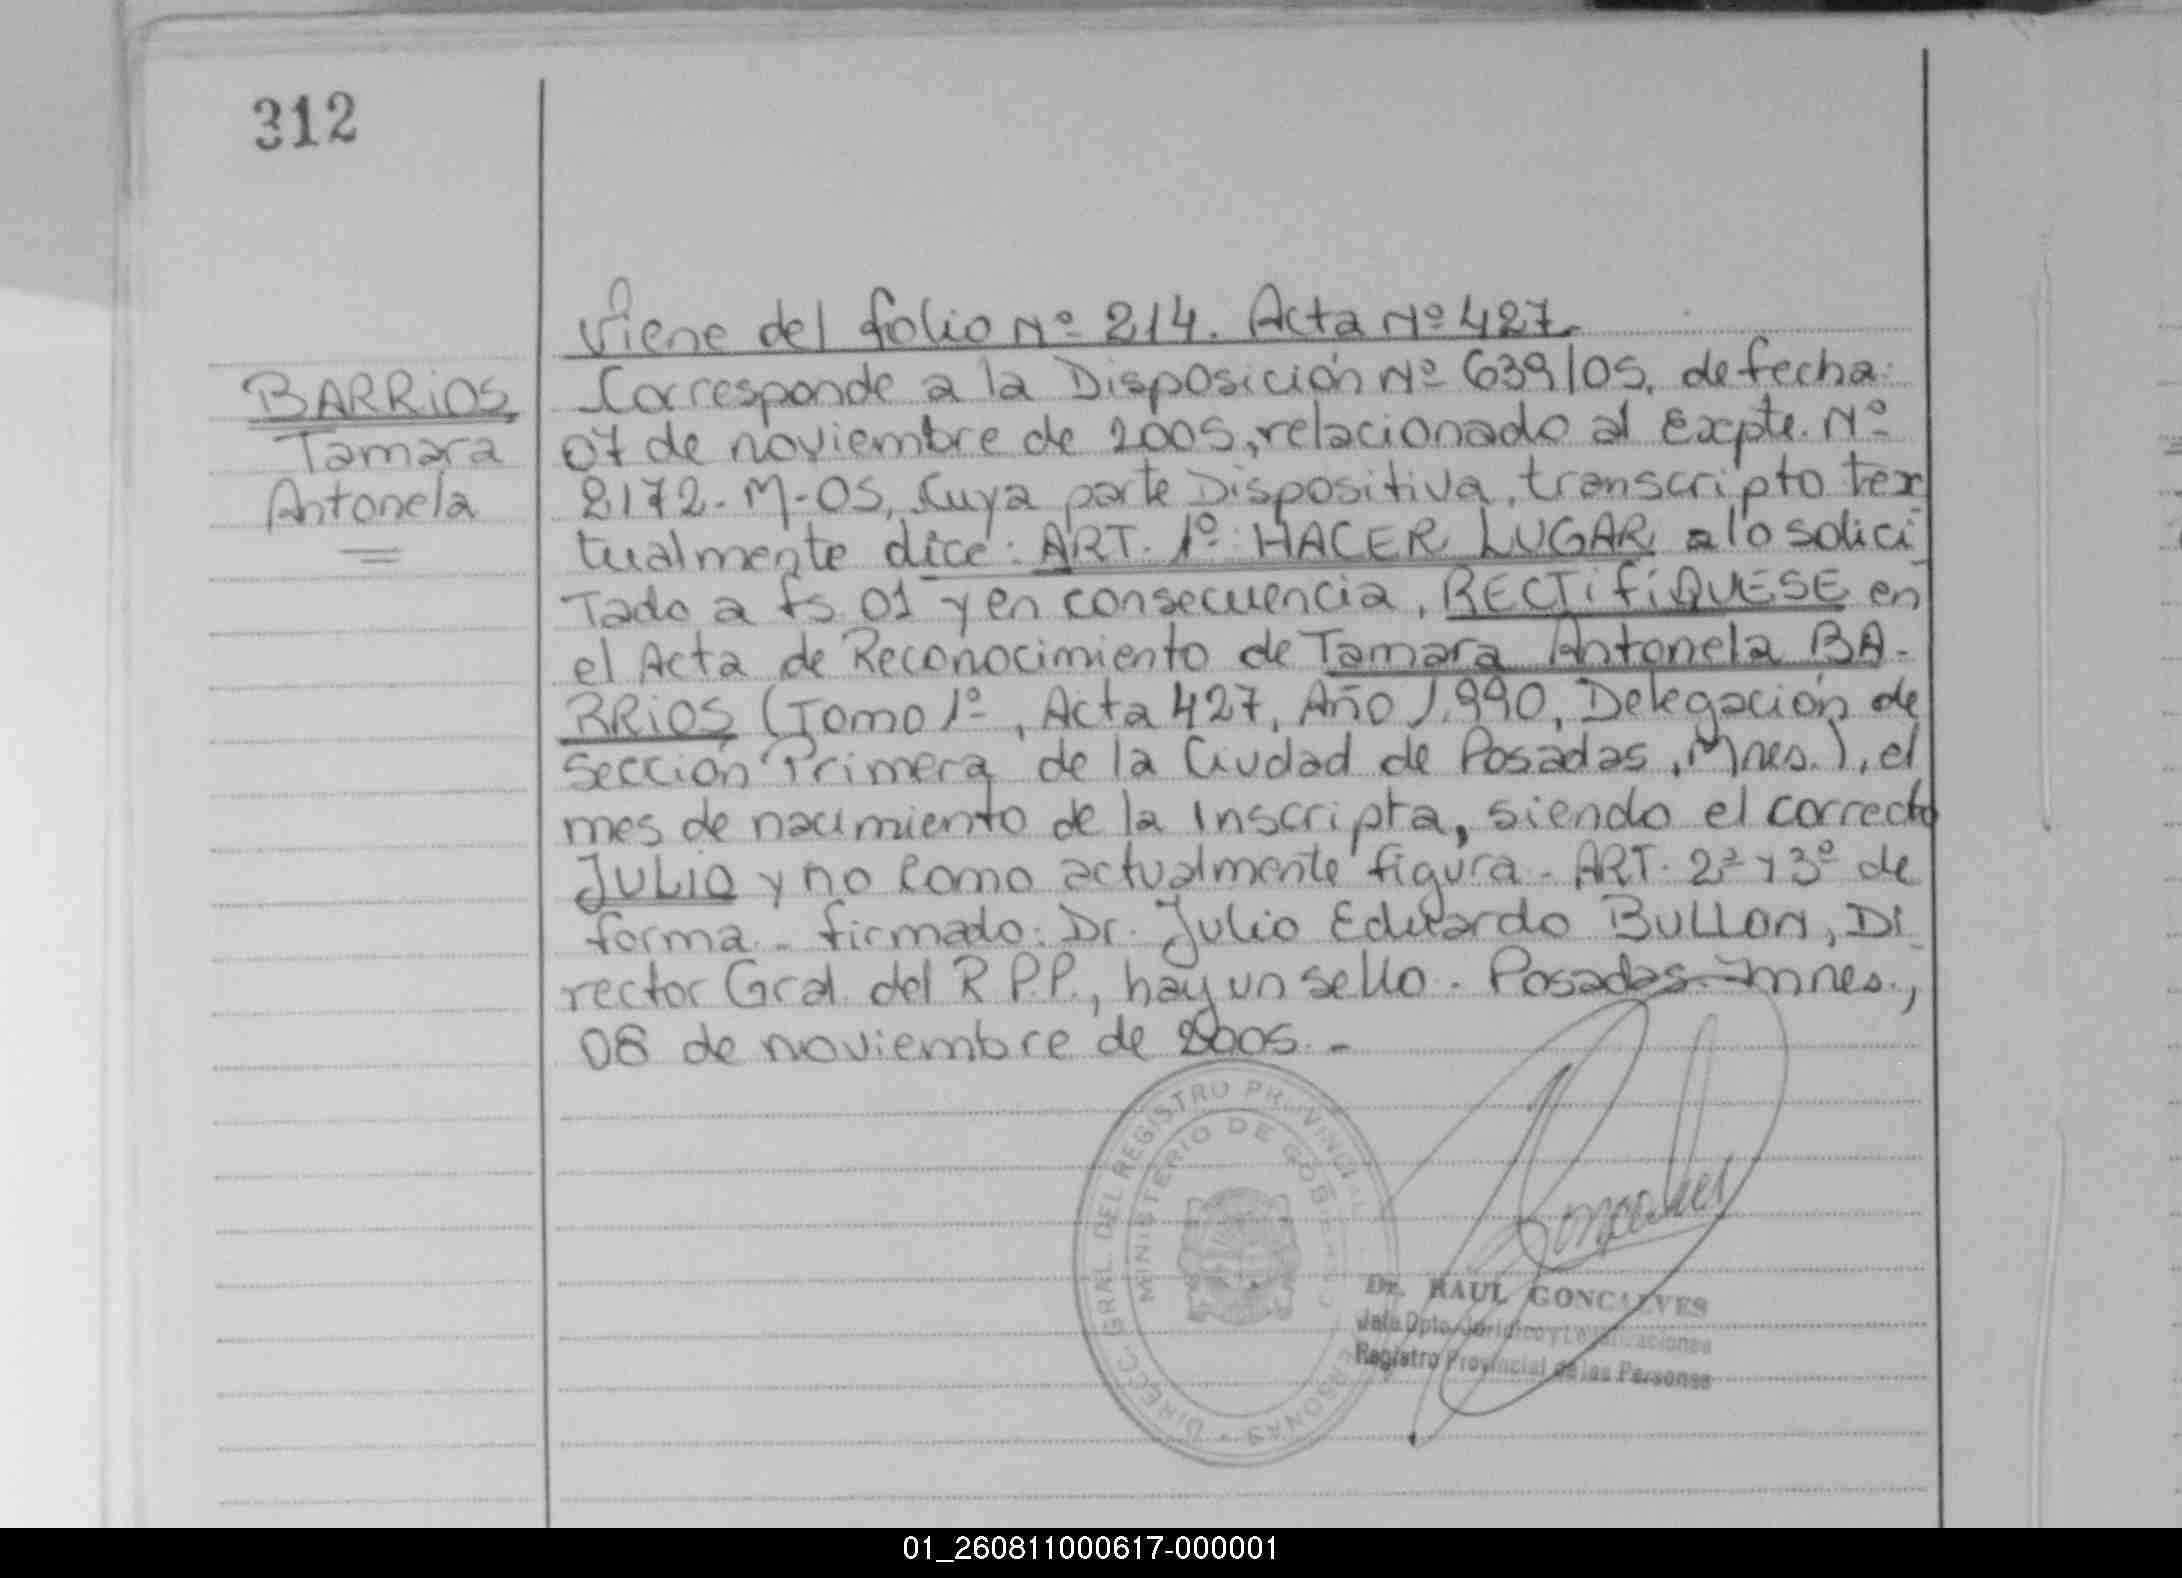 312
BARRiOS,
Tamara
Antonela
Viene del folio Nº 214. Acta Nº 427.
Corresponde a la Disposición Nº 639/05, de fecha:
07 de noviembre de 2005, relacionado al Expte. Nº
2172-M-05, Cuya parte Dispositiva, transcripto tex
tualmente dice: ART. 1º: HACER LUGAR a lo solici
Tado a fs. 01 y en consecuencia, RECTiFiQUESE en
el Acta de Reconocimiento de Tamara Antonela BA-
RRiOS (Tomo 1º, Acta 427, Año 1.990, Delegación de
Sección Primera de la Ciudad de Posadas, Mnes.), el
mes de nacimiento de la Inscripta, siendo el correcto
JULIO y no como actualmente figura. ART. 2º y 3º de
forma. firmado: Dr. Julio Eduardo BULLON, Di
rector Gral. del R.P.P., hay un sello. Posadas mnes.,
08 de noviembre de 2005. -
DIRECC. GRAL. DEL REGISTRO PROVINCIAL PERSONAS
MINISTERIO DE GOBIERNO
Dr. RAUL GONCALVES
Jefe Dpto. Jurídico y
Registro Provincial de las Personas
01_260811000617-000001